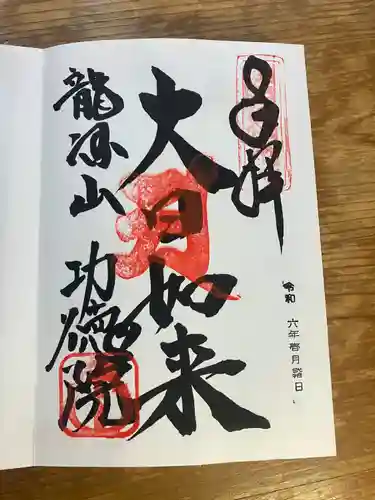 奉拝
令和 六年壱月 日
大日如来
龍泻山 功徳院